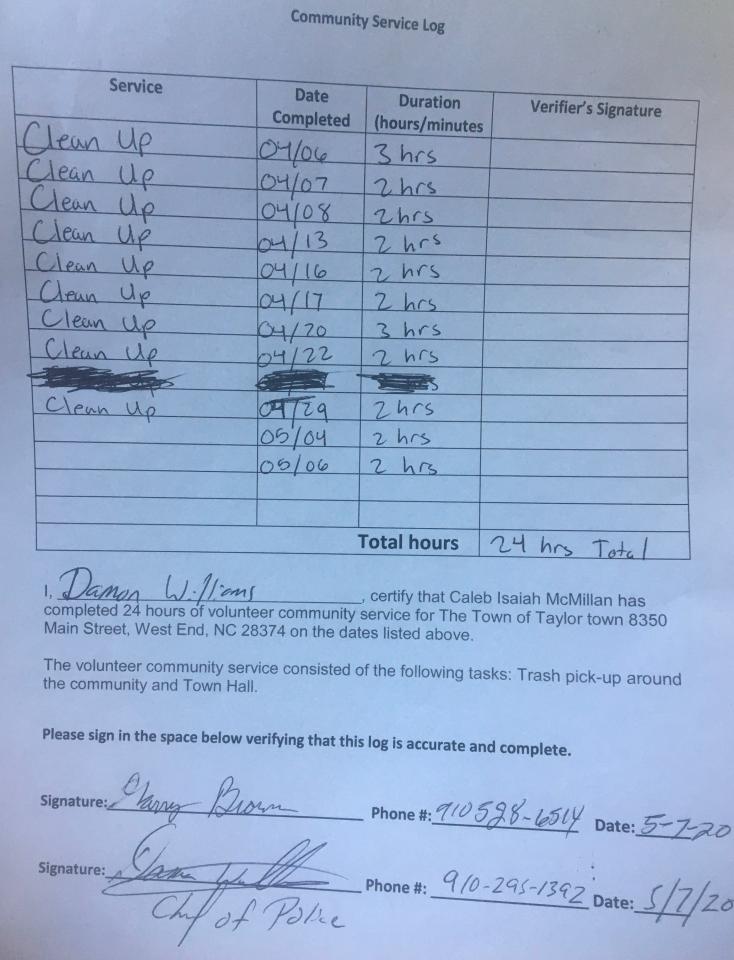 Community Service Log
Service Date Completed Duration (hours/minutes Verifier's Signature
Clean Up 04/06 3 hrs
Clean Up 04/07 2 hrs
Clean Up 04/08 2 hrs
Clean Up 04/13 2 hrs
Clean Up 04/16 2 hrs
Clean Up 04/17 2 hrs
Clean Up 04/20 3 hrs
Clean Up 04/22 2 hrs
Clean Up 04/29 2 hrs
05/04 2 hrs
05/06 2 hrs
Total hours 24 hrs Total
I, Damon Williams, certify that Caleb Isaiah McMillan has
completed 24 hours of volunteer community service for The Town of Taylor town 8350
Main Street, West End, NC 28374 on the dates listed above.
The volunteer community service consisted of the following tasks: Trash pick-up around
the community and Town Hall.
Please sign in the space below verifying that this log is accurate and complete.
Signature: Brown Phone #: 910 528-6514 Date: 5-7-20
Signature: Phone #: 910-295-1392 Date: 5/7/20
Chf of Police